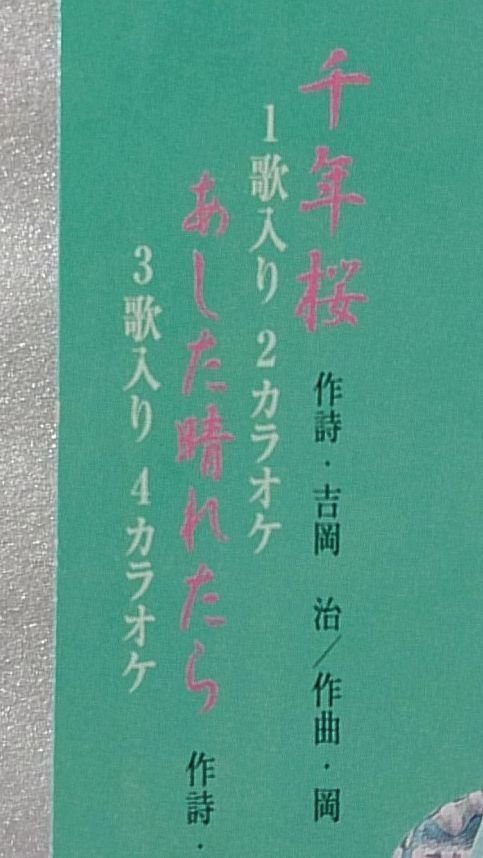 千年桜 作詩・吉岡 治／作曲・岡
1歌入り 2カラオケ
あした晴れたら 作詩・
3歌入り 4カラオケ